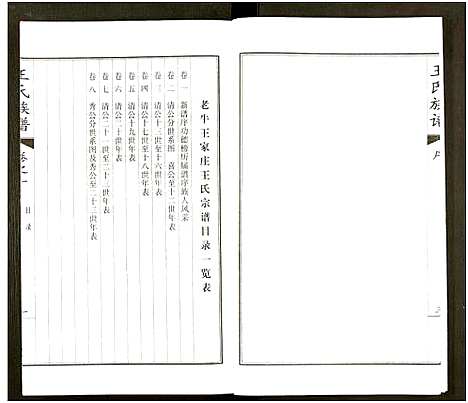 王氏族谱
老牛王家庄王氏宗谱目录一览表
卷一 新谱序功德榜历届谱序族人风采
卷二 清公分世系图 喜公至十二世年表
卷三 清公十三世至十六世年表
卷四 清公十七世至十八世年表
卷五 清公十九世年表
卷六 清公二十世年表
卷七 清公二十一世至二十三世年表
卷八 秀公分世系图及秀公至二十三世年表
王氏族谱
卷之一
目录
一